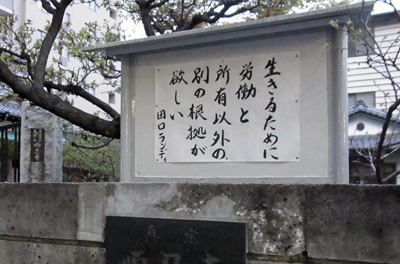 生きるために
労働と
所有以外の
別の根拠が
欲しい
田口ランディ
真宗